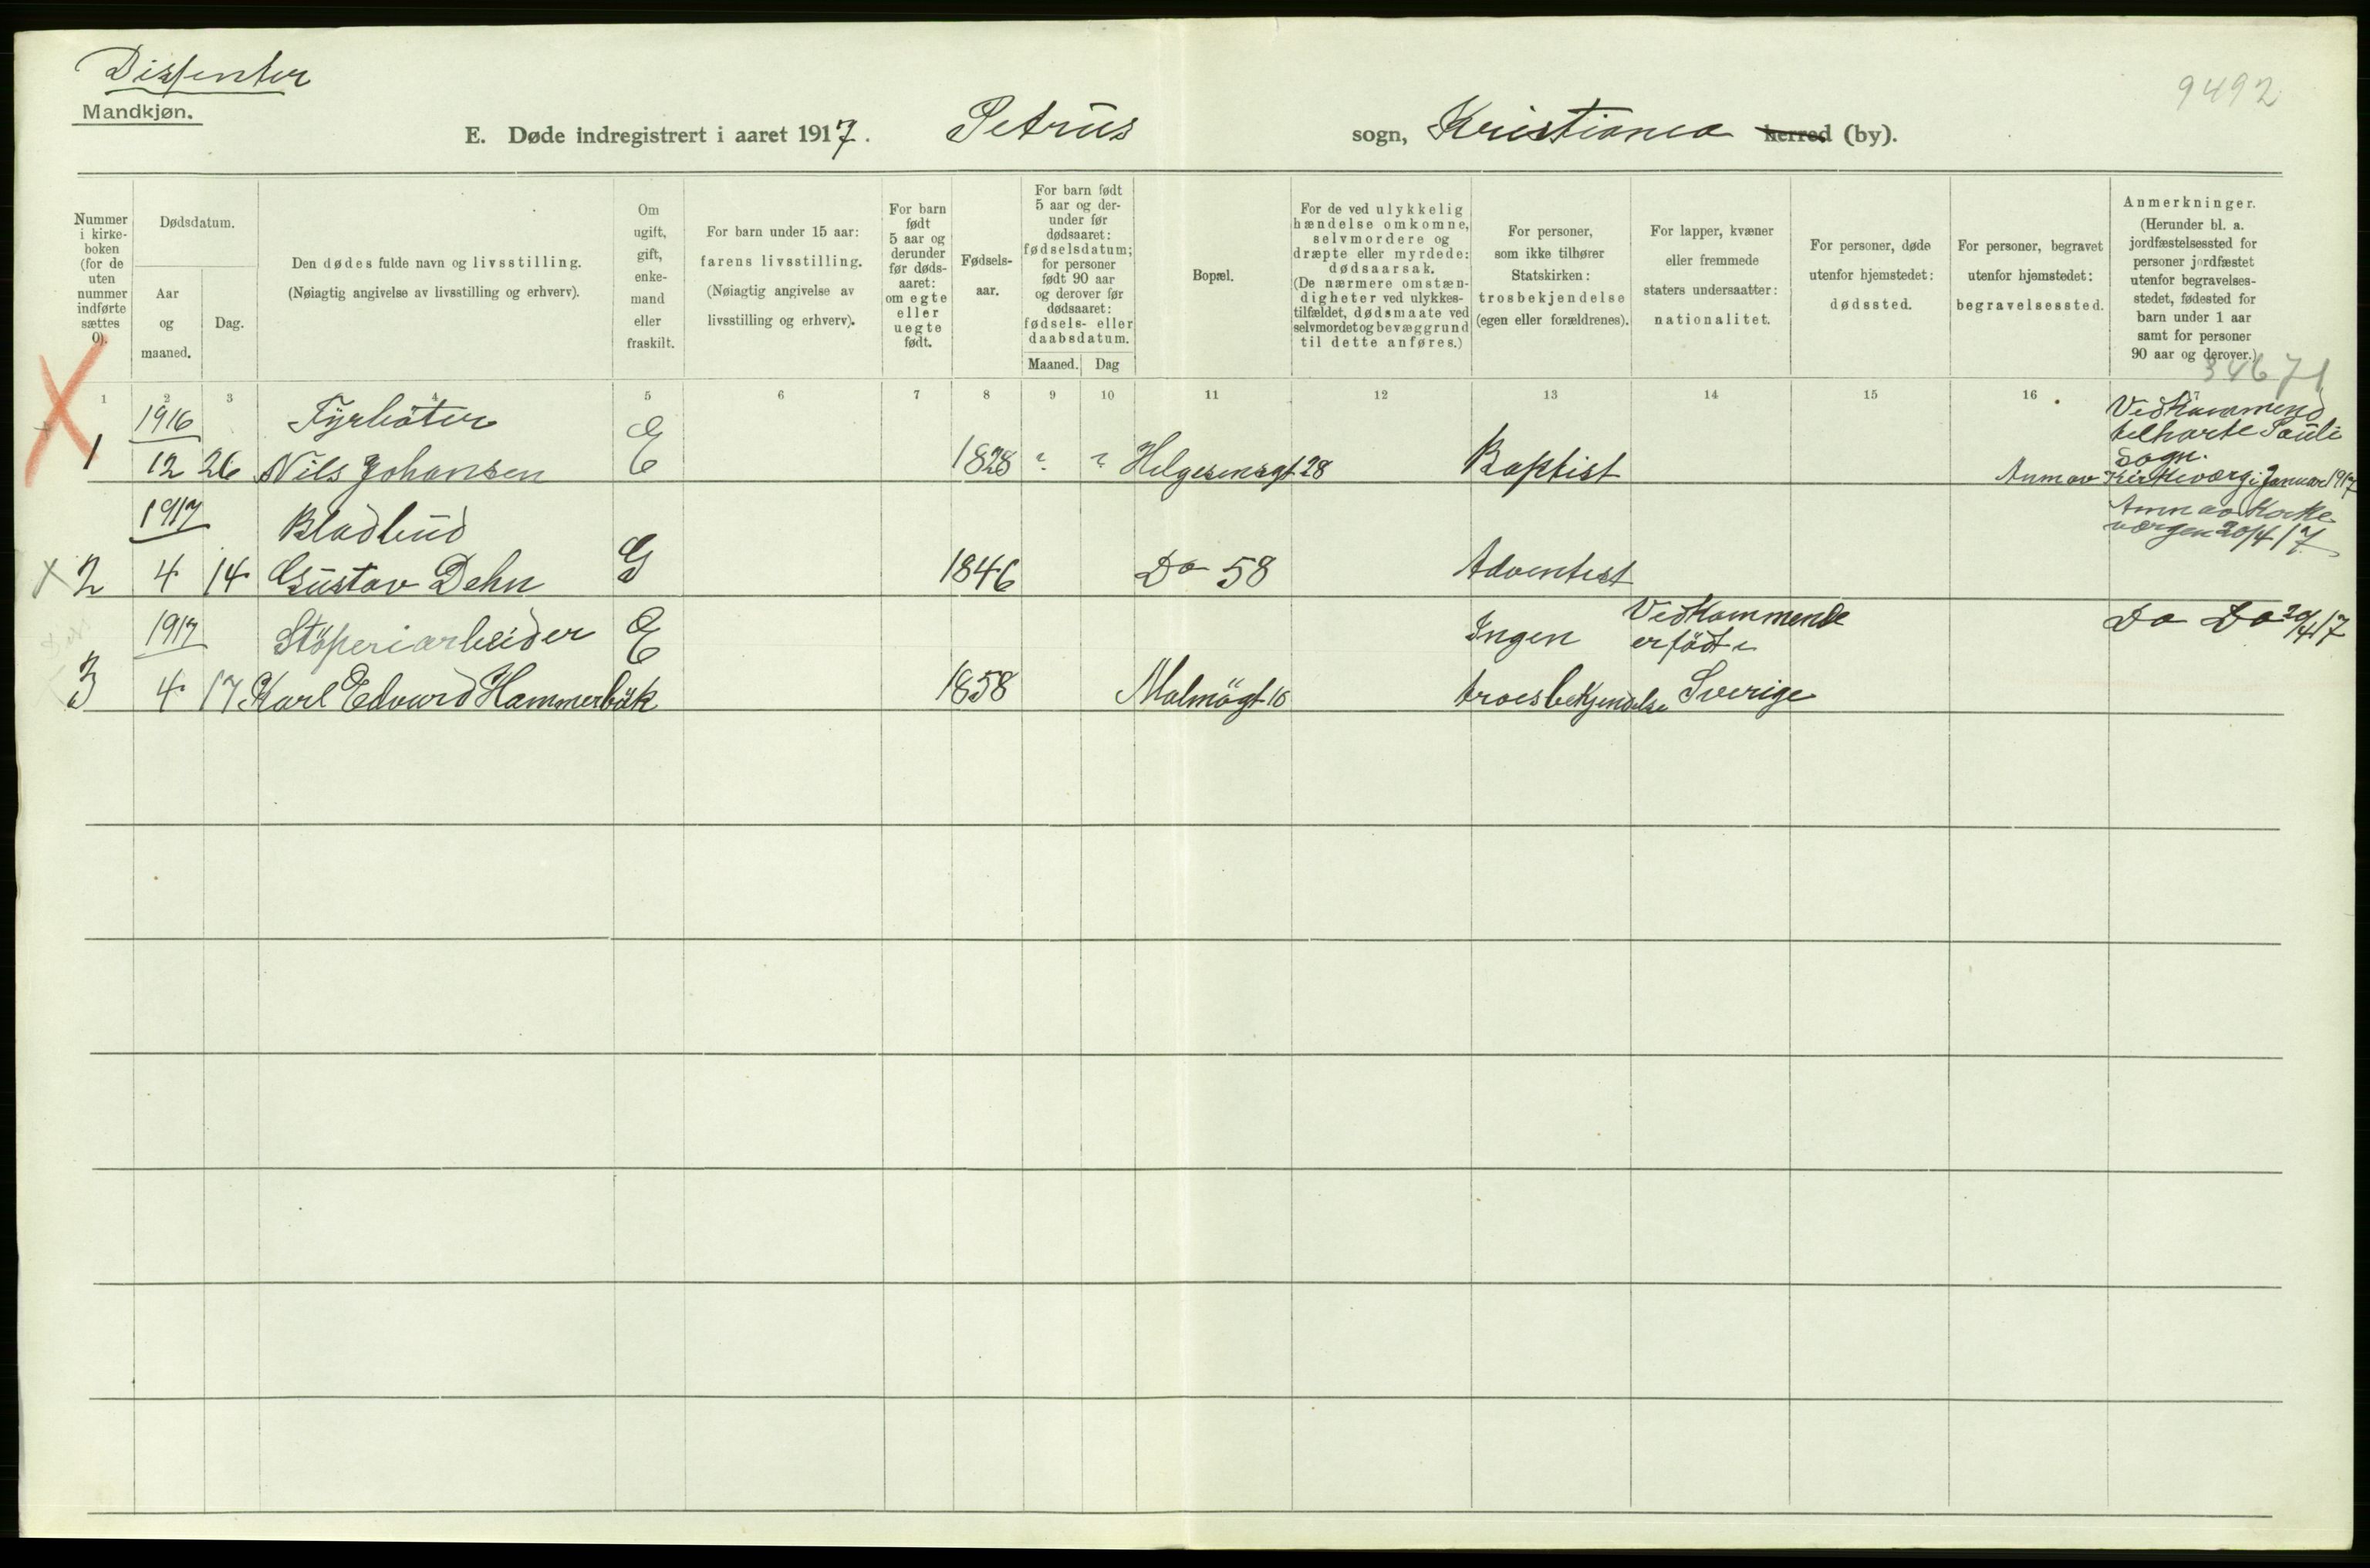 Dissenter
Mandkjøn.
9492
E. Døde indregistrert i aaret 1917. Petrus sogn, Kristiania herred (by).
Nummer i kirke-boken (for de uten nummer indførte sættes 0).
Dødsdatum.
Aar og maaned.
Dag.
Den dødes fulde navn og livsstilling.
(Nøiagtig angivelse av livsstilling og erhverv).
Om ugift, gift, enke-mand eller fraskilt.
For barn under 15 aar: farens livsstilling.
(Nøiagtig angivelse av livsstilling og erhverv).
For barn født 5 aar og derunder før døds-aaret: om egte eller uegte født.
Fødsels-aar.
For barn født 5 aar og der-under før dødsaaret: fødselsdatum; for personer født 90 aar og derover før dødsaaret: fødsels- eller daabsdatum.
Maaned. Dag
Bopæl.
For de ved ulykkelig hændelse omkomne, selvmordere og dræpte eller myrdede: dødsaarsak.
(De nærmere omstæn-digheter ved ulykkes-tilfældet, dødsmaate ved selvmordet og bevæggrund til dette anføres.)
For personer, som ikke tilhører Statskirken: trosbekjendelse (egen eller forældrenes).
For lapper, kvæner eller fremmede staters undersaatter: nationalitet.
For personer, døde utenfor hjemstedet: dødssted.
For personer, begravet utenfor hjemstedet: begravelsessted.
Anmerkninger.
(Herunder bl. a. jordfæstelsessted for personer jordfæstet utenfor begravelses-stedet, fødested for barn under 1 aar samt for personer 90 aar og derover.)
34671
1 2 3 4 5 6 7 8 9 10 11 12 13 14 15 16
1916 Fyrböter E Vedkommend
tilhørte Pauli
Sogn.
1 12 26 Nils Johansen 1828 ? ? Helgesensgt 28 Baptist Anm av Kirkeværg i Januar 1917
1917 Bladbud G Anm av Kirke
værgen 20/4 17
2 4 14 Gustav Dehn 1846 Do 58 Adventist
1917 Stöperiarbeider E Ingen Vedkommende
er född i Do Do 20/4 17
3 4 17 Karl Edvard Hammerbäk 1858 Malmögt 16 troesbekjendelse Sverige